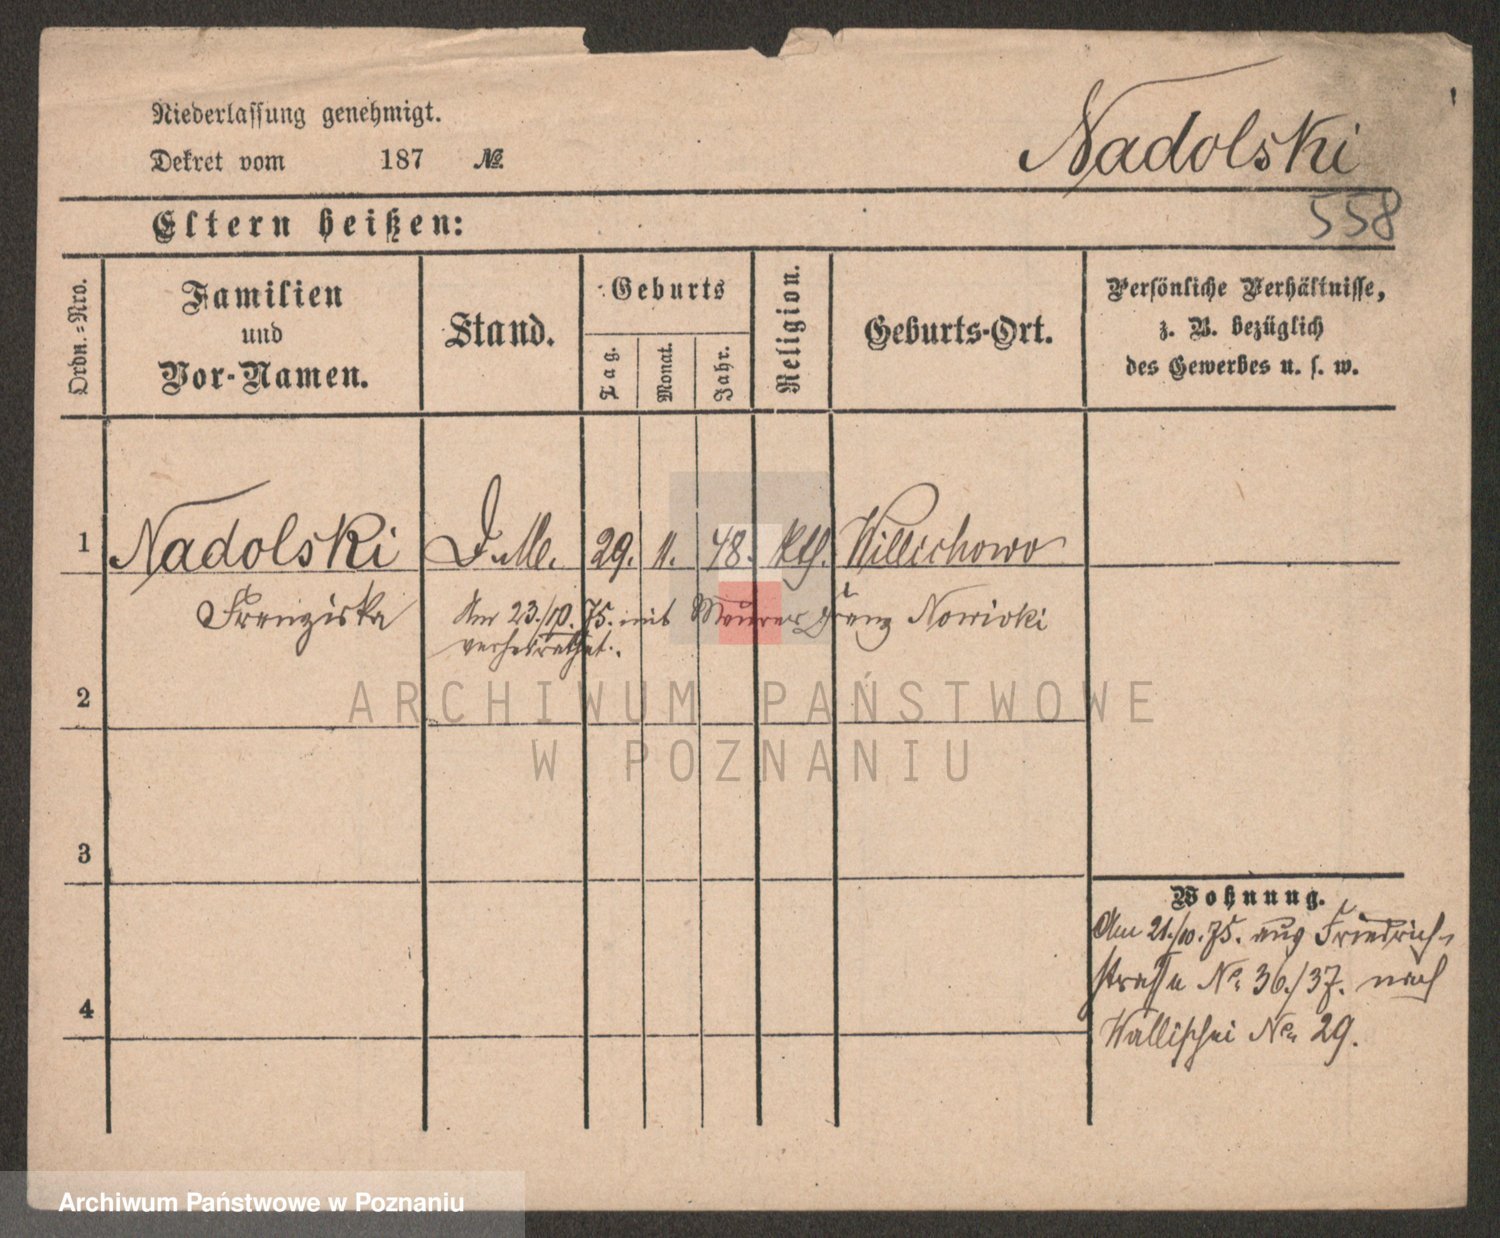 Niederlassung genehmigt.
Dekret vom 187 №
Nadolski
558
Eltern heißen:
Ordn.=Nro.
Familien
und
Vor-Namen.
Stand.
Geburts
Tag.
Monat.
Jahr.
Religion.
Geburts-Ort.
Persönliche Verhältnisse,
z. B. bezüglich
des Gewerbes u. s. w.
1 Nadolski D. M. 29. 11. 48. kth. Willichowo
Franziska Am 23./10. 75. mit Maurer Franz Nowicki
verheirathet.
2
ARCHIWUM PAŃSTWOWE
W POZNANIU
3
Wohnung.
Am 21./10. 75. aus Friedrich-
strasse No. 36./37. nach
4
Wallischei No. 29.
Archiwum Państwowe w Poznaniu